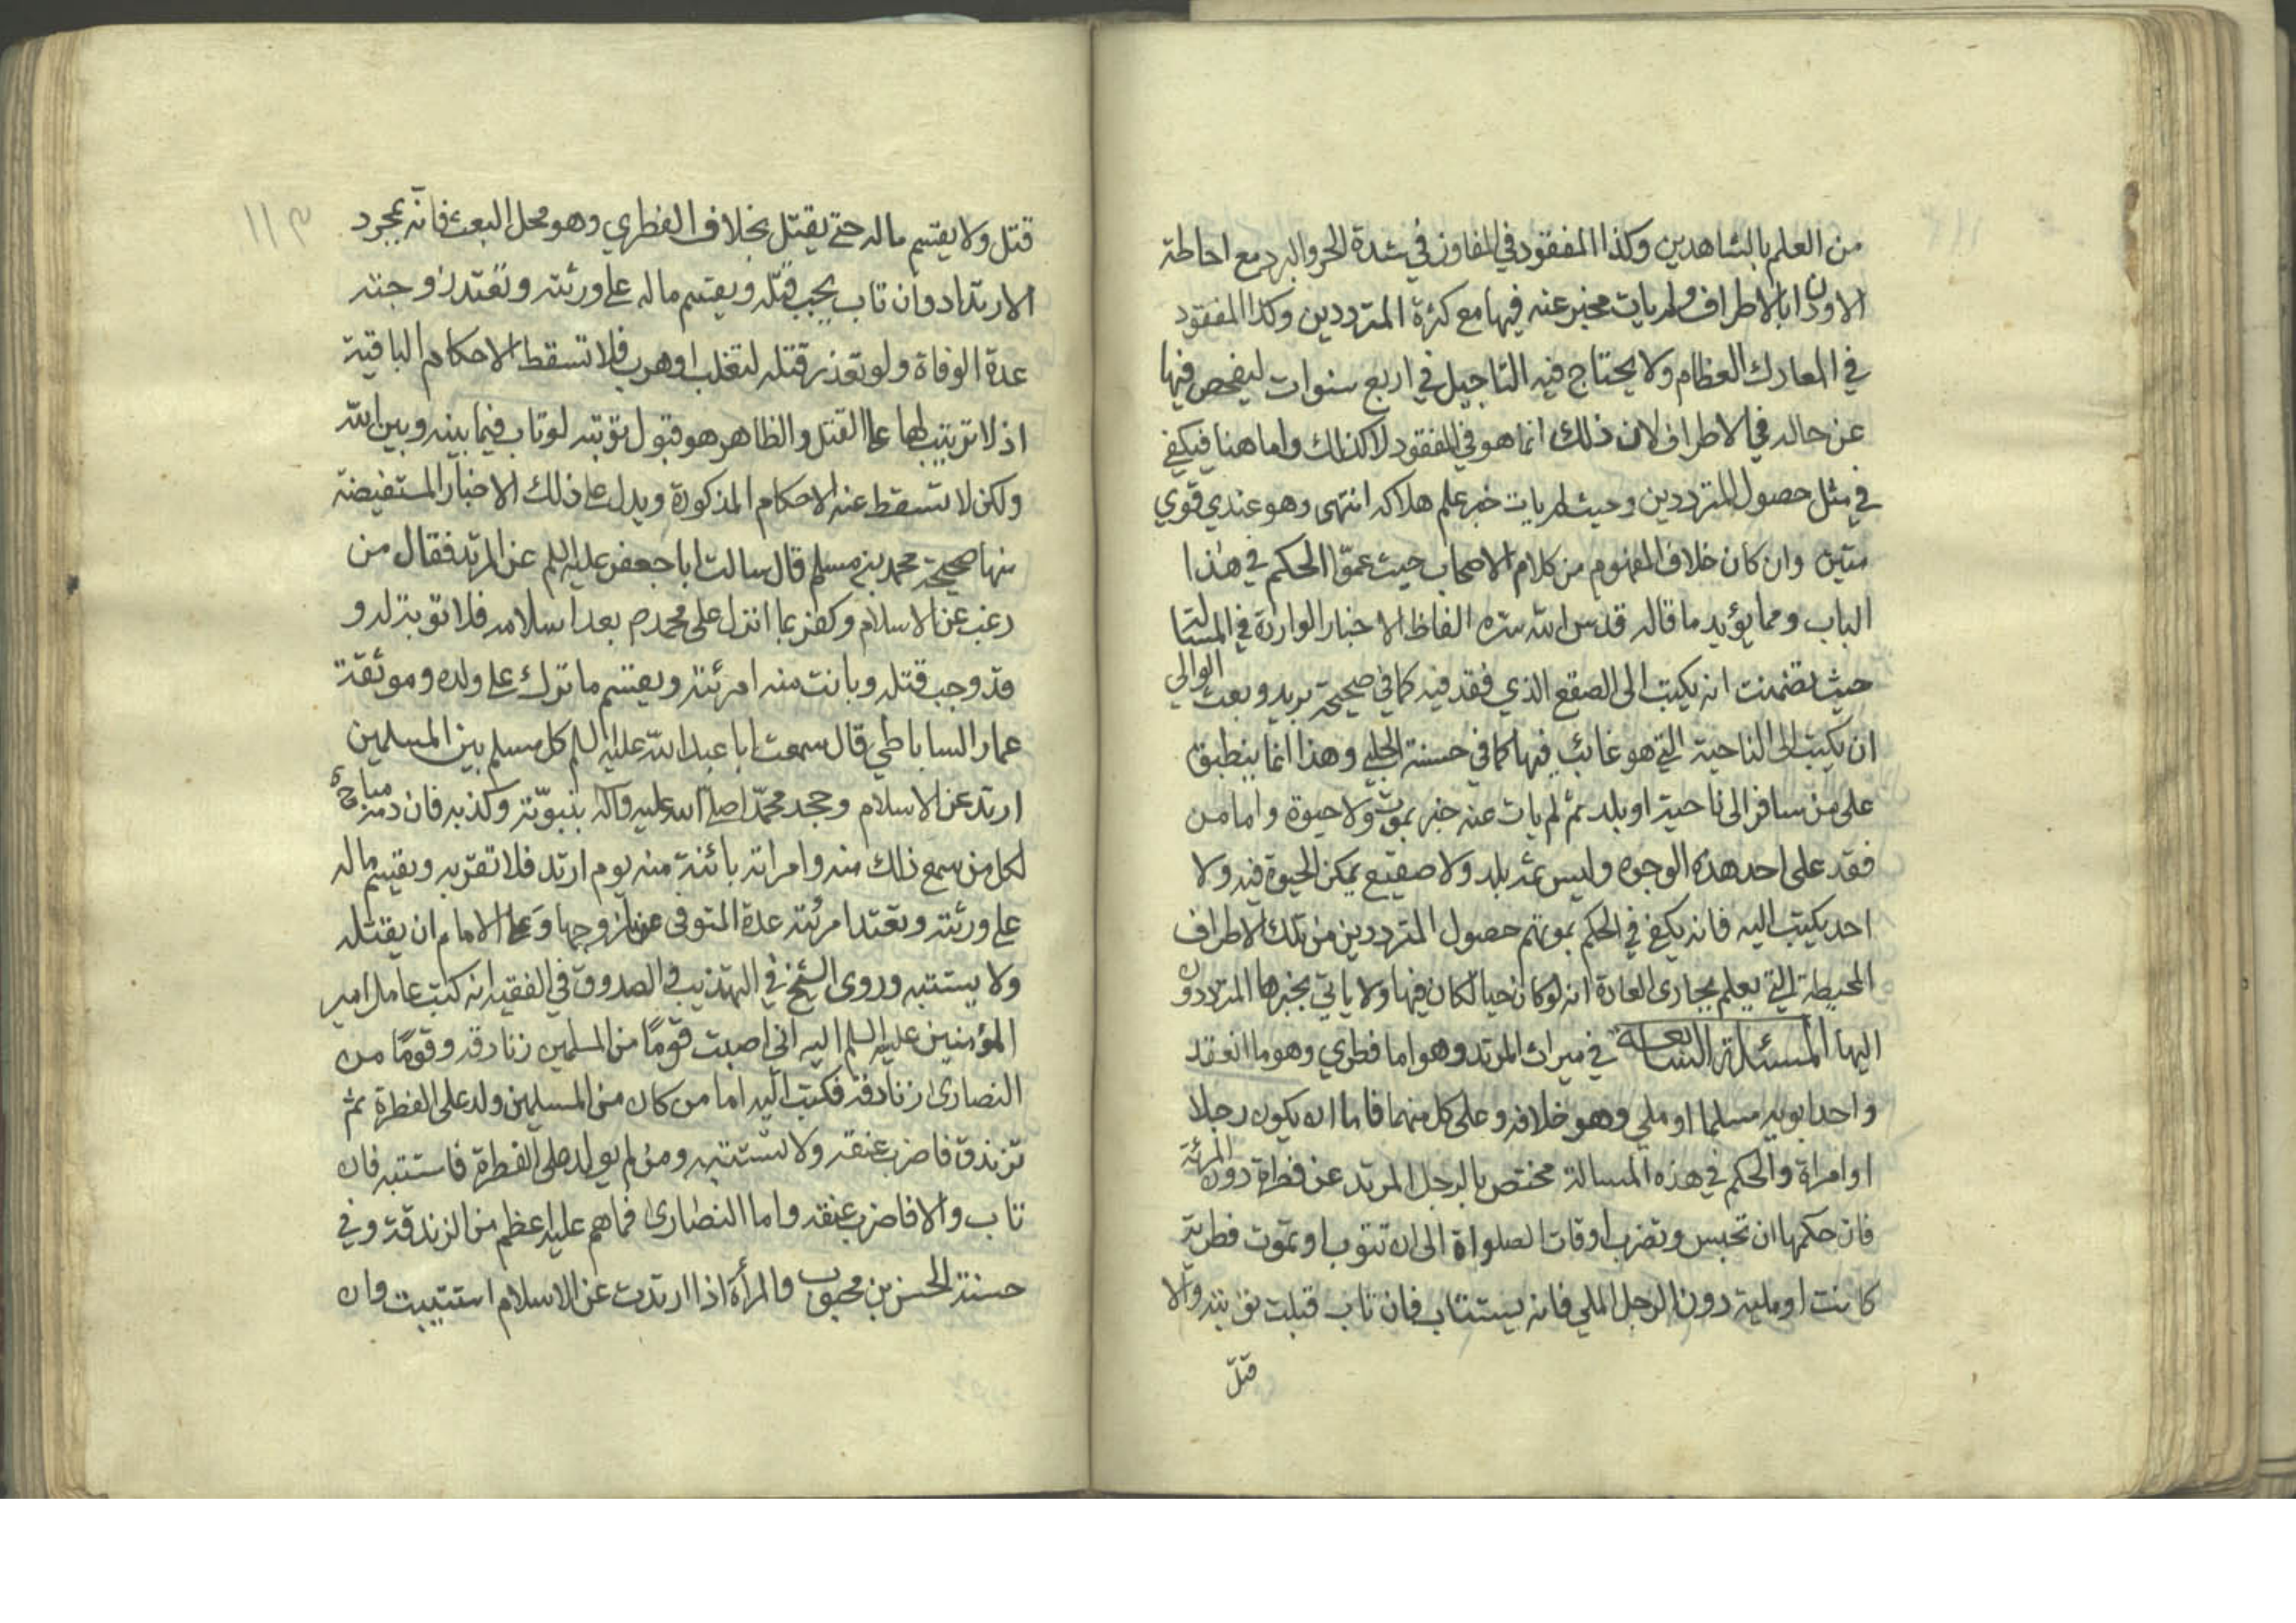 من العلم بالشاهدين وكذا المفقود في المفاوز في شدة الحر والبرد مع احاطة
الاوذان ابالاطراف ولم يات مخبر عنه فيها مع كثرة المترددين وكذا المفقود
في المعارك العظام ولا يحتاج فيه التاجيل في اربع سنوات ليفحص فيها
عن حاله في الاطراف لان ذلك انما هو في المفقود لا كذلك واما هنا فيكفي
في مثل حصول المترددين وحيث لم يات خبر علم هلاكه انتهى وهو عندي قوي
متين وان كان خلاف المفهوم من كلام الاصحاب حيث عموا الحكم في هذا
الباب ومما يؤيد ما قاله قدس الله سره الفاظ الاخبار الواردة في المسالة
حيث تضمنت انه يكتب الى الصقع الذي فقد فيه كما في صحيحة بريد وبعث الوالي
ان يكتب الى الناحية التي هو غائب فيها كما في حسنة الحلبي وهذا انما ينطبق
على من سافر الى ناحية او بلد ثم لم يات عنه خبر بموت ولا حيوة واما من
فقد على احد هذه الوجوه وليس ثم بلد ولا صقيع يمكن الحيوة فيه ولا
احد يكتب اليه فانه يكفي في الحكم بموتهم حصول المترددين من تلك الاطراف
المحيطة التي يعلم بمجاري العادة انه لو كان حيا لكان فيها ولا ياتي بخبرها المترددون
اليها المسئلة التاسعة في ميراث المرتد وهو اما فطري وهو ما انعقد
واحد ابويه مسلما او ملي وهو خلافه وعلى كل منهما فاما ان يكون رجلا
او امراة والحكم في هذه المسالة مختص بالرجل المرتد عن فطرة دون المرئة
فان حكمها ان تحبس وتضرب اوقات الصلواة الى ان تتوب او تموت فطرية
كانت او ملية دون الرجل الملي فانه يستتاب فان تاب قبلت توبته والا
قتل
١١٣
قتل ولا يقسم ماله حتى يقتل بخلاف الفطري وهو محل البعث فانه بمجرد
الارتداد وان تاب يجب قتله ويقسم ماله على ورثته وتعتد زوجته
عدة الوفاة ولو تعذر قتله لتغلب او هرب فلا تسقط الاحكام الباقية
اذ لا ترتيب لها على القتل والظاهر هو قبول توبته لو تاب فيما بينه وبين الله
ولكن لا تسقط عنه الاحكام المذكورة ويدل على ذلك الاخبار المستفيضة
منها صحيحة محمد بن مسلم قال سالت ابا جعفر عليه السلم عن المرتد فقال من
رغب عن الاسلام وكفر بما انزل على محمد ص بعد اسلامه فلا توبة له و
قد وجب قتله وبانت منه امرئته ويقسم ما ترك على ولده وموثقة
عمار الساباطي قال سمعت ابا عبد الله عليه السلم كل مسلم بين المسلمين
ارتد عن الاسلام وجحد محمدا صلى الله عليه وآله بنبوته وكذبه فان دمه مباح
لكل من سمع ذلك منه وامراته بائنة منه يوم ارتد فلا تقربه ويقسم ماله
على ورثته وتعتد امرئته عدة المتوفى عنها زوجها وعلى الامام ان يقتله
ولا يستتبه وروى الشيخ في التهذيب والصدوق في الفقيه انه كتب عامل امير
المؤمنين عليه السلم اليه اني اصبت قوما من المسلمين زنادقه وقوما من
النصارى زنادقه فكتب اليه اما من كان من المسلمين ولد على الفطرة ثم
تزندق فاضرب عنقه ولا تستتبه ومن لم يولد على الفطرة فاستتبه فان
تاب والا فاضرب عنقه واما النصارى فما هم عليه اعظم من الزندقة وفي
حسنة الحسن بن محبوب والمرأة اذا ارتدت عن الاسلام استتيبت فان